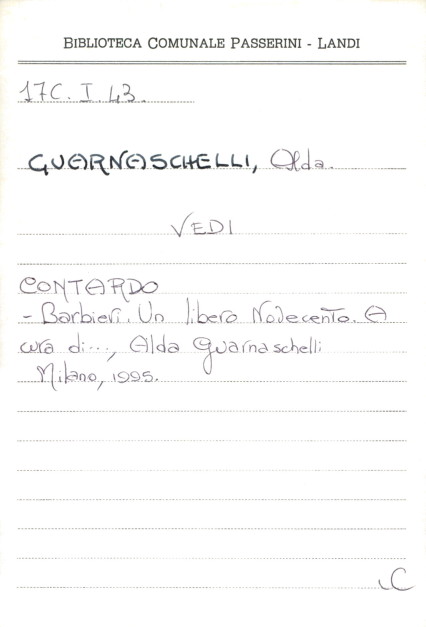 BIBLIOTECA COMUNALE PASSERINI - LANDI
17C. I 43.
GUARNASCHELLI, Alda.
VEDI
CONTARDO
- Barbieri. Un libero Novecento. A
cura di..., Alda Guarnaschelli
Milano, 1995.